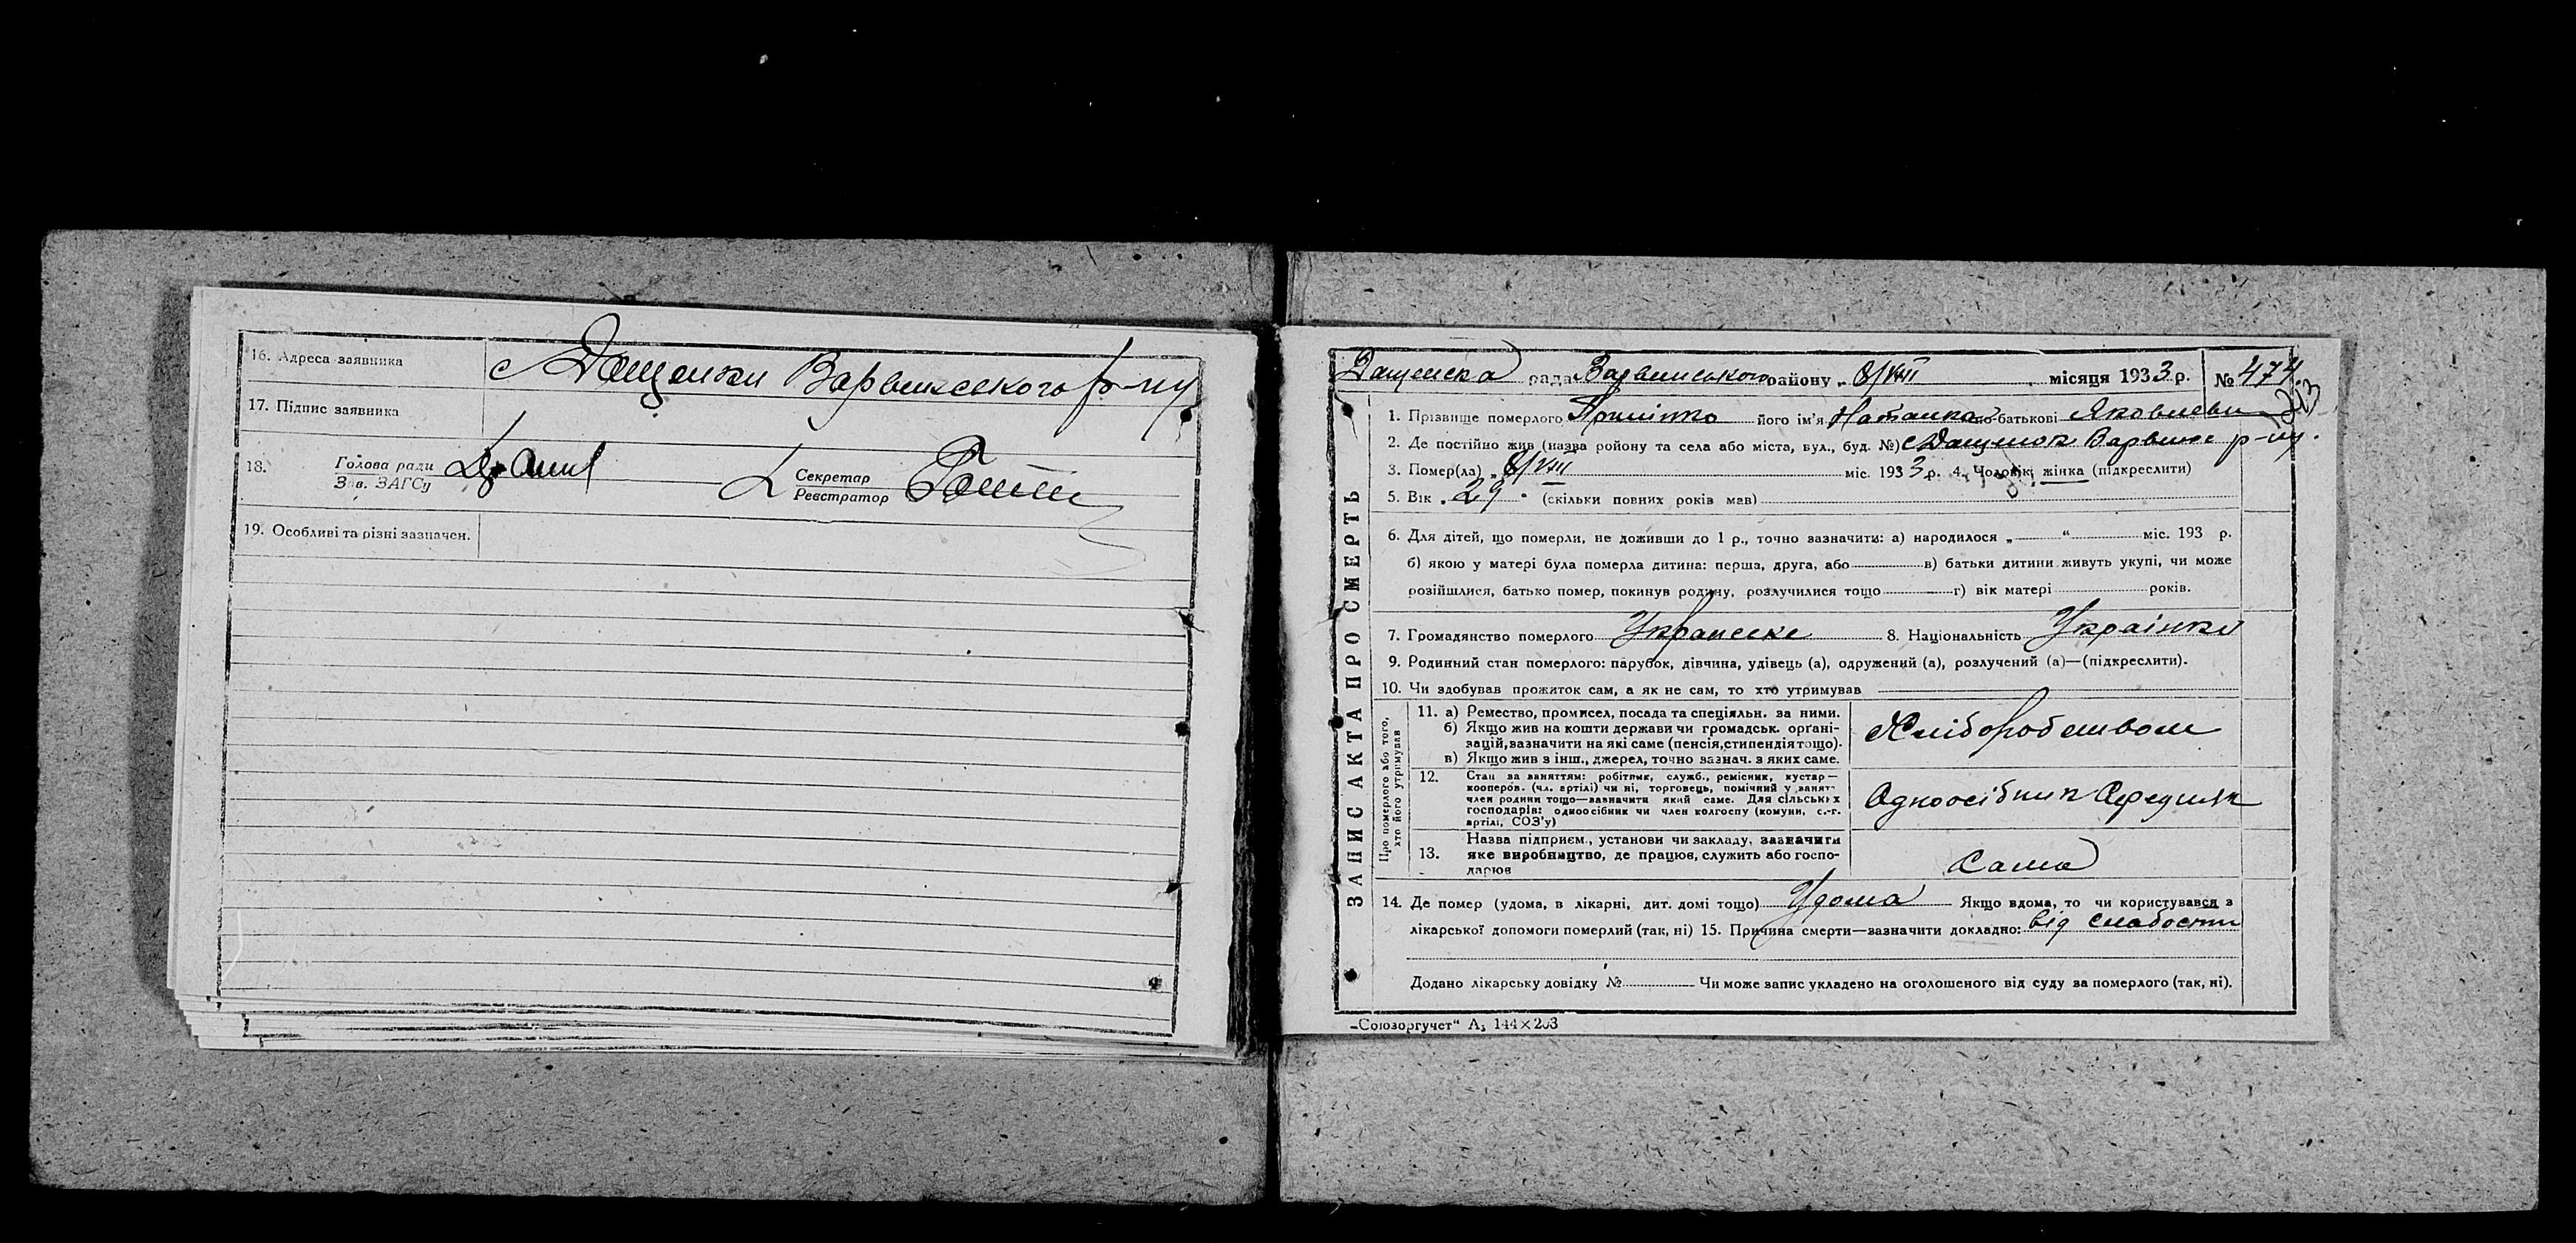 16. Адреса заявника с Дащенки Варвинського р-ну
17. Підпис заявника
18. Голова ради
Зав. ЗАГСу
Секретар
Реєстратор
19. Особливі та різні зазначен.
Дащенська рада Варвинського району „ 8/VIII місяця 1933 р. № 474
ЗАПИС АКТА ПРО СМЕРТЬ
1. Прізвище померлого його ім'я Наталка по-батькові Яковлевна
2. Де постійно жив (назва району та села або міста, вул., буд. №) с Дащенок Варвинс р-ну.
3. Помер(ла) „ 8/VIII міс. 1933 р. 4. Чоловік, жінка (підкреслити)
5. Вік 29 (скільки повних років мав)
6. Для дітей, що померли, не доживши до 1 р., точно зазначити: а) народилося „ “ міс. 193 р.
б) якою у матері була померла дитина: перша, друга, або в) батьки дитини живуть укупі, чи може
розійшлися, батько помер, покинув родину, розлучилися тощо г) вік матері років.
7. Громадянство померлого Українске 8. Національність Українка
9. Родинний стан померлого: парубок, дівчина, удівець (а), одружений (а), розлучений (а)—(підкреслити).
10. Чи здобував прожиток сам, а як не сам, то хто утримував
Про померлого або того,
хто його утримував
11. а) Ремество, промисел, посада та спеціяльн. за ними.
б) Якщо жив на кошти держави чи громадськ. орґані-
зацій, зазначити на які саме (пенсія, стипендія тощо).
в) Якщо жив з інш., джерел, точно зазнач. з яких саме.
Хліборобством
12. Стан за заняттям: робітник, служб., ремісник, кустар —
кооперов. (чл. артілі) чи ні, торговець, помічний у занят-
член родини тощо—зазначити який саме. Для сільських
господарів: одноосібник чи член колгоспу (комуни, с.-г.
артілі, СОЗ'у)
Одноосібник Середняк
13. Назва підприєм., установи чи закладу, зазначити
яке виробництво, де працює, служить або госпо-
дарює
Сама
14. Де помер (удома, в лікарні, дит. домі тощо) Удома Якщо вдома, то чи користувався з
лікарської допомоги померлий (так, ні) 15. Причина смерти—зазначити докладно: від слабости
Додано лікарську довідку № Чи може запис укладено на оголошеного від суду за померлого (так, ні).
„Союзоргучет“ А5 144×203